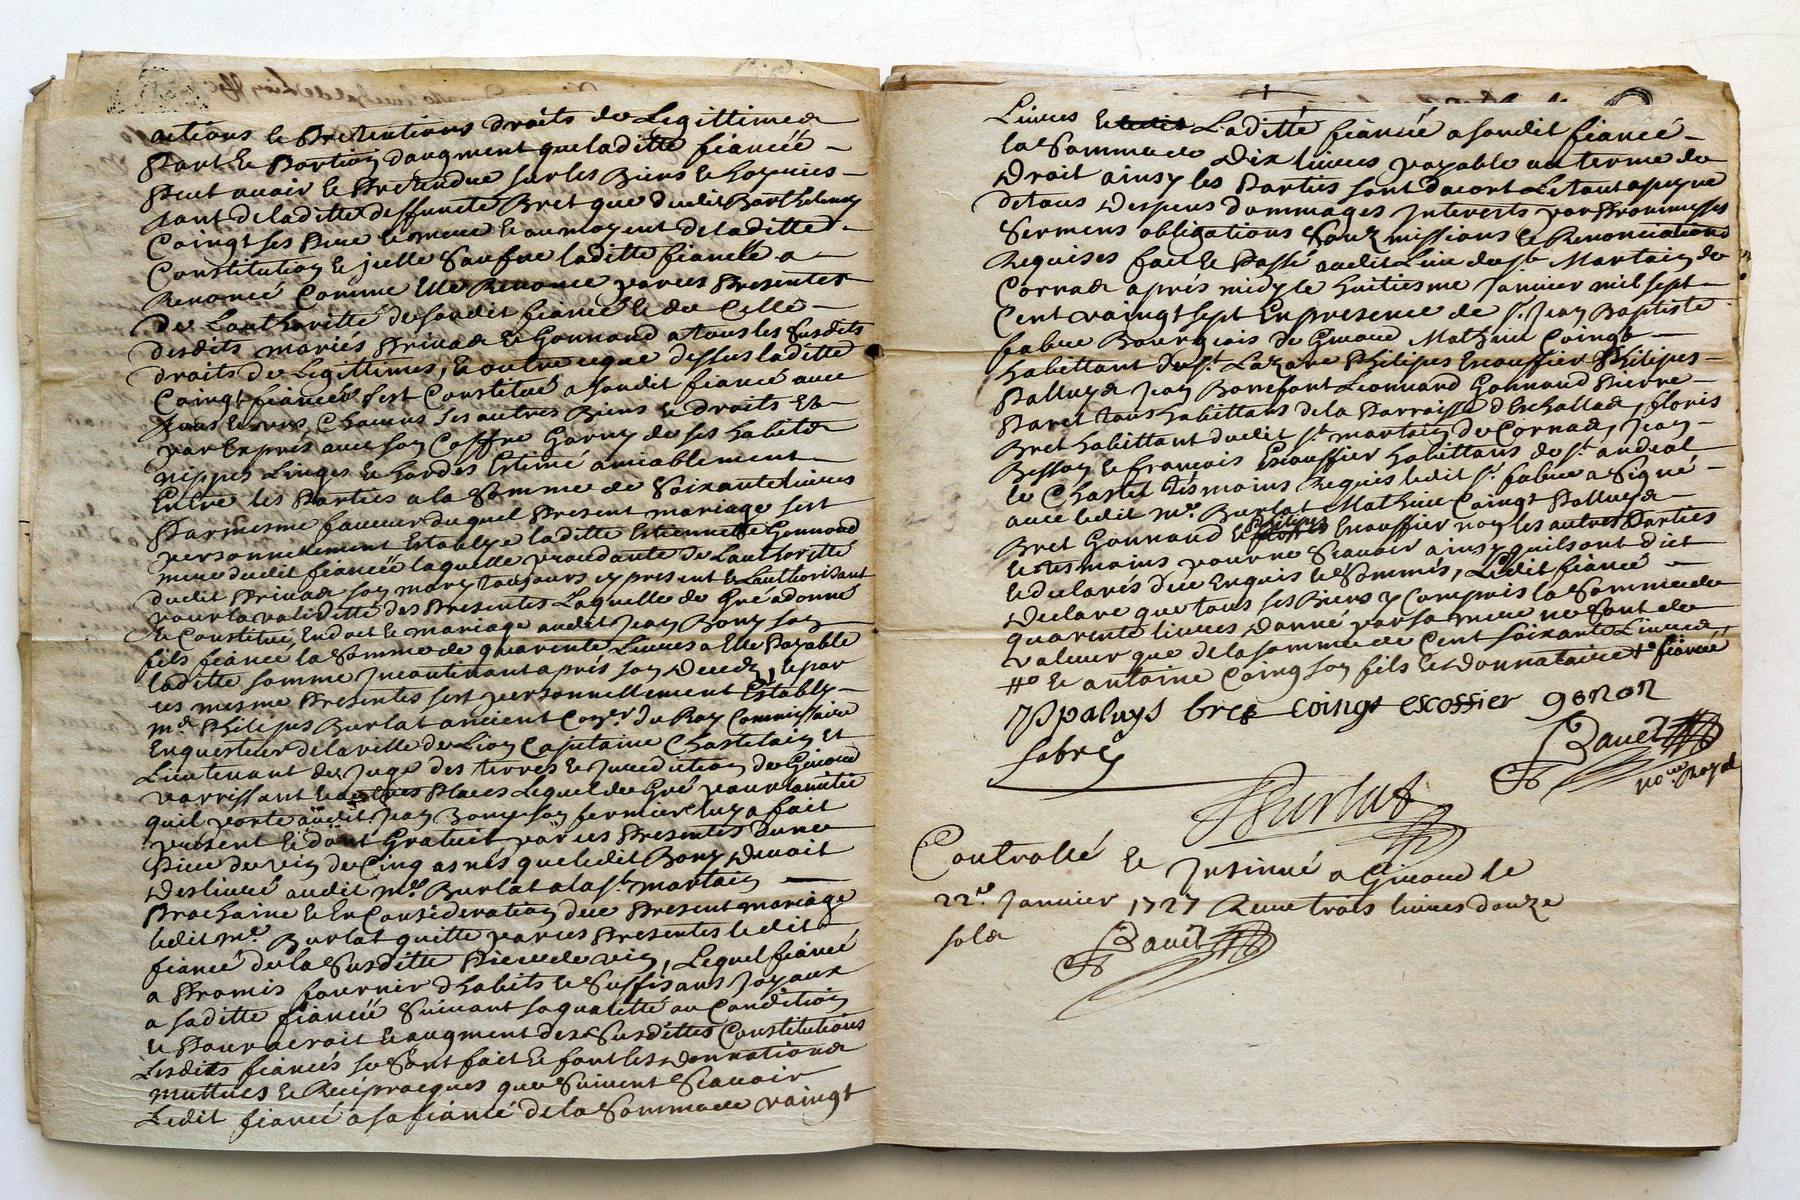 actions et Pretentions droits de Legittimes
Part et Portion daugment que laditte fiancéé
Peut avoir et Pretendre sur les Biens et hoyries
tant de laditte deffuncte Bret que dudit Barthelemy
Coingt ses Pere et mere et au moyent de laditte
Constitution et jcelle Saufve laditte fiancéé a
Renoncé Comme Elle Renonce par ces Presentes
De Lauthoritté de sondit fiancé et de Celle
desdits mariés Privas et Gonnand a tous les susdits
droits de Legittimes, et outre ce que dessus laditte
Coingt fiancéé sest Constitué a sondit fiancé avec
tous et uns Chacuns ses autres Biens et droits Et
par Exprés avec son Coffre Garny de ses habits
nippes Linges et hardes Estimé amiablement
Entre les Parties a la Somme de Soixante livres
Par mesme faveur duquel Present mariage sest
personnellement Establye laditte Estiennette Gonnand
mere dudit fiancé laquelle procedante de Lauthoritté
dudit Privas son mary toujours cy present et Lauthorisant
pour la validitté des Presentes Laquelle de Gré a donné
et Constitué En dot et mariage audit Jean Bony son
fils fiancé la Somme de quarente Livres a Elle Payable
laditte somme Jncontinant aprés son Deceds, et par
ces mesme Presentes sest personnellement Estably
mre Philipes Burlat ancient Coner du Roy Commissaire
Enquesteur de la ville de Lion Capitaine Chastelain et
Lieutenant de Juge des terres et Jurediction de Givord
varrissant et autres Places Lequel de Gré pour lamitié
quil porte audit Jean Bony son fermier luy a fait
present et dont Gratuit par ces Presentes Dune
Piece de vin de Cinq asnés que ledit Bony Devoit
Deslivré audit mre Burlat a la st martain
Prochaine et En Consideration du Present mariage
ledit mre Burlat quitte par ces Presentes ledit
fiancé de la Susditte Piece de vin, Lequel fiancé
a Promis fournir dhabits et Suffisans Joyaux
a saditte fiancéé Suivant sa qualitté ou Condition
et Pour acroit et augment des Susdittes Constitutions
Lesdits fiancés se sont fait et font les donnations
muttues et Réciproques que Suivent Scavoir
Ledit fiancé a sa fiancé de la Somme de vaingt
Livres et Laditte fiancéé a sondit fiancé
la Somme de Dix livres payable au terme du
Droit ainsy les Parties sont dacort Le tout a peyne
de tous Despens dommages Jnterests par Prommesses
Sermens obligations Soumissions et Renonciations
Requises fait et Passé audit Lieu de st Martain de
Cornas aprés midy le huitiesme Janvier mil sept
Cent vaingt sept En presence de sr Jean Baptiste
fabre Bourgeois de Givord Mathieu Coingt
habittant de st Lazare Philipes Escoffier Philipes
Palluys Jean Bonefont Leonnard Gonnand Pierre
Paret tous habittans de la Parroisse dEschallas, floris
Bret habittant dudit st martain de Cornas, Jean
Besson et françois Escoffier habittans de st andeal
le Chastel tesmoins Requis ledit sr fabre a Signé
avec ledit mre Burlat Mathieu Coingt Palluys
Bret Gonnand et Philipes Escoffier non les autres Parties
et tesmoins pour ne Scavoir ainsy quils ont dict
et declarés duë Enquis et Sommés, Ledit fiancé
Declare que tous ses Biens y Compris la Somme de
quarente livres donné par sa mere ne Sont de
valeur que de la somme de Cent soixante Livres
# et antoine Coing son fils et donnataire # fiancé
pallyys bret coingt escossier gonon
fabre
Bauet
nore Royal
Burlat
Controllé et Jnsinué a Givord le
22e Janvier 1727 Receu trois livres douze
sols
Bauet